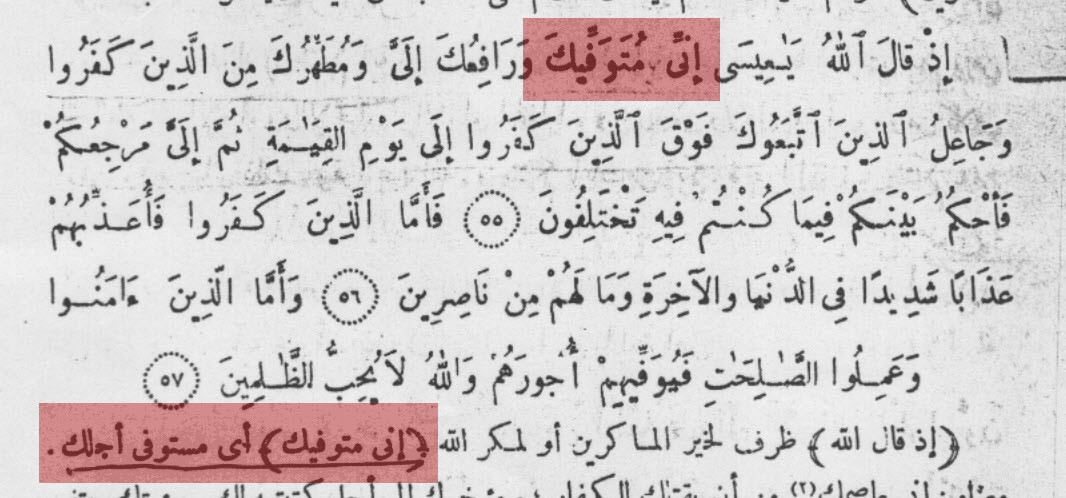 إِذْ قَالَ ٱللَّهُ يَـٰعِيسَى إِنِّى مُتَوَفِّيكَ وَرَافِعُكَ إِلَىَّ وَمُطَهِّرُكَ مِنَ الَّذِينَ كَفَرُوا
وَجَاعِلُ ٱلَّذِينَ ٱتَّبَعُوكَ فَوْقَ ٱلَّذِينَ كَفَرُوا إِلَى يَوْمِ القِيَـٰمَةِ ثُمَّ إِلَىَّ مَرْجِعُكُمْ
فَأَحْكُمُ بَيْنَكُمْ فِيمَا كُنْتُمْ فِيهِ تَخْتَلِفُونَ ٥٥ فَأَمَّا الَّذِينَ كَفَرُوا فَأُعَذِّبُهُمْ
عَذَابًا شَدِيدًا فِى الدُّنْيَا والآخِرَةِ وَمَا لَهُمْ مِنْ نَاصِرِينَ ٥٦ وَأَمَّا الَّذِينَ ءَامَنُوا
وَعَمِلُوا الصَّـٰلِحَـٰتِ فَيُوَفِّيهِمْ أُجُورَهُمْ وَاللهُ لَا يُحِبُّ الظَّـٰلِمِينَ ٥٧
﴿إذ قال الله﴾ ظرف لخير الماكرين أو لمكر الله ﴿إنى متوفيك﴾ أى مستوفى أجلك .